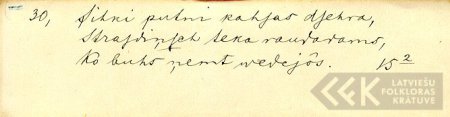 30, Sihki putni kahjas dsehra,
Strasdinsch teka raudadams,
Ko buhs ņemt wedejôs. 15 2
LATVIEŠU
FOLKLORAS
KRĀTUVE